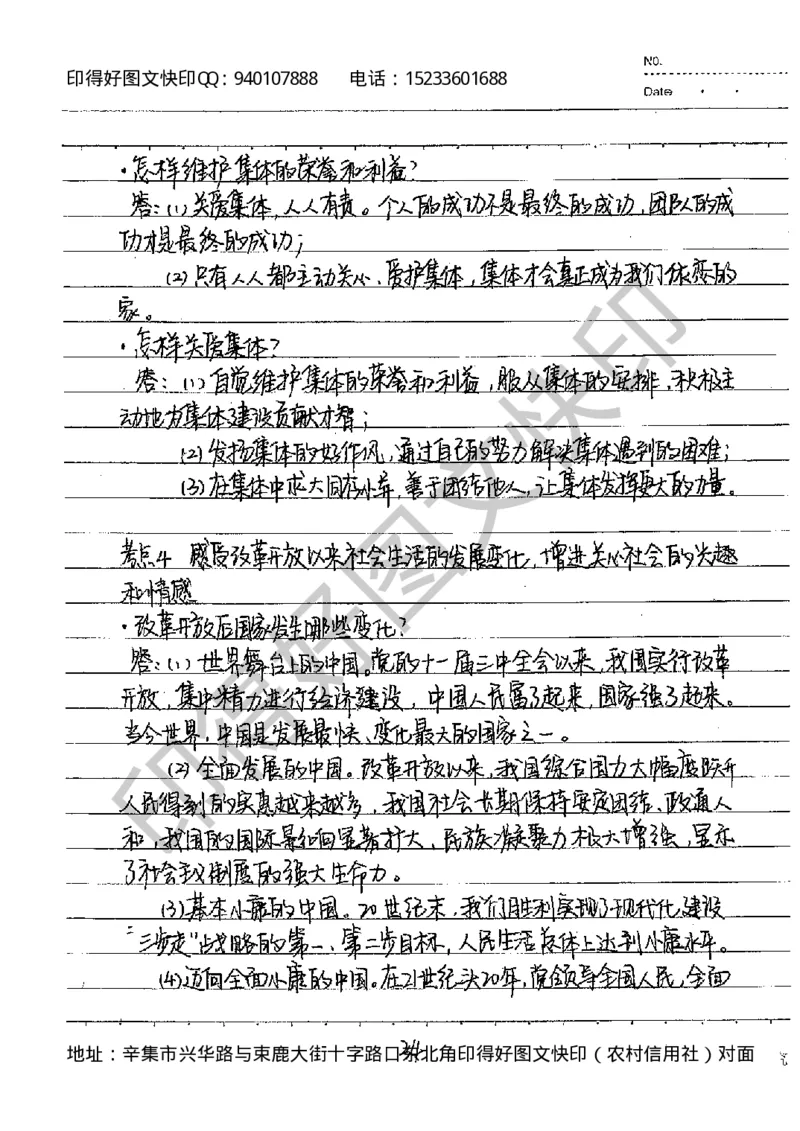 No.
印得好图文快印QQ：940107888 电话：15233601688
Date
·怎样维护集体的荣誉和利益？
答：(1)关爱集体，人人有责。个人的成功不是最终的成功，团队的成
功才是最终的成功；
(2)只有人人都主动关心、爱护集体，集体才会真正成为我们依恋的
家。
·怎样关爱集体？
答：(1)自觉维护集体的荣誉和利益，服从集体的安排，积极主
动地为集体建设贡献才智；
(2)发扬集体的好作风，通过自己的努力解决集体遇到的困难；
(3)在集体中求大同存小异，善于团结他人，让集体发挥更大的力量。
考点4 感受改革开放以来社会生活的发展变化，增进关心社会的兴趣
和情感
·改革开放后国家发生哪些变化？
答：(1)世界舞台上的中国。党的十一届三中全会以来，我国实行改革
开放，集中精力进行经济建设，中国人民富了起来，国家强了起来。
当今世界，中国是发展最快、变化最大的国家之一。
(2)全面发展的中国。改革开放以来，我国综合国力大幅度跃升
人民得到的实惠越来越多，我国社会长期保持安定团结、政通人
和，我国的国际影响显著扩大，民族凝聚力极大增强，显示
了社会主义制度的强大生命力。
(3)基本小康的中国。20世纪末，我们胜利实现了现代化建设
“三步走”战略的第一、第二步目标，人民生活总体上达到小康水平。
(4)迈向全面小康的中国。在21世纪头20年，党领导全国人民，全面
地址：辛集市兴华路与束鹿大街十字路口东北角印得好图文快印（农村信用社）对面
印得好图文快印